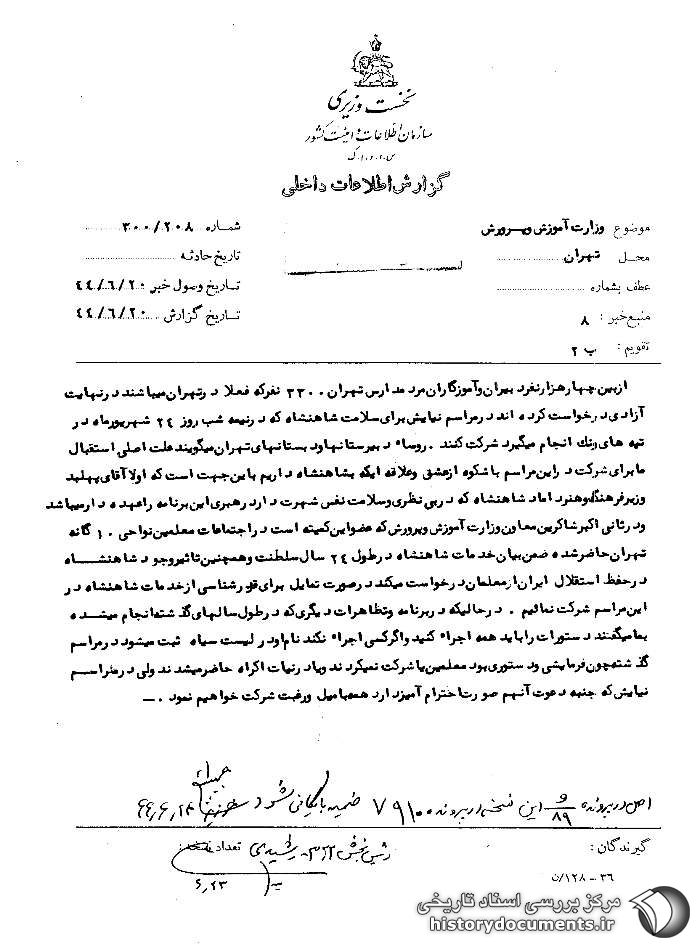 نخست وزیری
سازمان اطلاعات و امنیت کشور
س.۲.۰۱.ک
گزارش اطلاعات داخلی
موضوع وزارت آموزش وپرورش
شماره ۳۰۰/۲۰۸
محل تهران
تاریخ حادثه
عطف بشماره
تاریخ وصول خبر ۴۴/۶/۲۰
منبع خبر : ۸
تاریخ گزارش ۴۴/۶/۲۰
تقویم : ب ۲
ازبین چهارهزارنفرد بیران وآموزگاران مرد مدارس تهران ۳۳۰۰ نفرکه فعلا درتهران میباشند درنهایت
آزادی درخواست کرده اند درمراسم نیایش برای سلامت شاهنشاه که درنیمه شب روز ۲۴ شهریورماه در
تپه های ونك انجام میگیرد شرکت کنند . روساء دبیرستانهاود بستانهای تهران میگویند علت اصلی استقبال
ما برای شرکت دراین مراسم با شکوه ازعشق وعلاقه ایکه بشاهنشاه داریم باین جهت است که اولا آقای پهلبد
وزیرفرهنگ وهنرد اماد شاهنشاه که دربی نظری وسلامت نفس شهرت دارد رهبری این برنامه راعهده دارمیباشد
ود رثانی اکبرشاکرین معاون وزارت آموزش وپرورش که عضواین کمیته است دراجتماعات معلمین نواحی ۱۰ گانه
تهران حاضرشده ضمن بیان خدمات شاهنشاه درطول ۲۴ سال سلطنت وهمچنین تاثیروجود شاهنشاه
درحفظ استقلال ایران ازمعلمان درخواست میکند درصورت تمایل برای قدرشناسی ازخدمات شاهنشاه در
این مراسم شرکت نمائیم . درحالیکه دربرنامه وتظاهرات دیگری که درطول سالهای گذشته انجام میشده
بمامیگفتند دستورات رابايد همه اجراء کنید واگرکسی اجراء نکند نام اودرلیست سیاه ثبت میشود درمراسم
گذشته چون فرمایشی ود ستوری بود معلمین یا شرکت نمیکردند ویا درنهایت اکراه حاضرمیشدند ولی درمراسم
نیایش که جنبه دعوت آنهم صورت احترام آمیزدارد همه بامیل ورغبت شرکت خواهیم نمود . ــ
اصل در پرونده و/۸۹ این نسخه در پرونده ۷۹۱۰۰ ضمیمه بایگانی شود ۴۴/۶/۲۴
گیرندگان :
رئیس بخش ۳۲۲ رشیدی
تعداد نسخه :
۶/۲۳
۳۶ – ۱۲۸/ن
مرکز بررسی اسناد تاریخی
historydocuments.ir